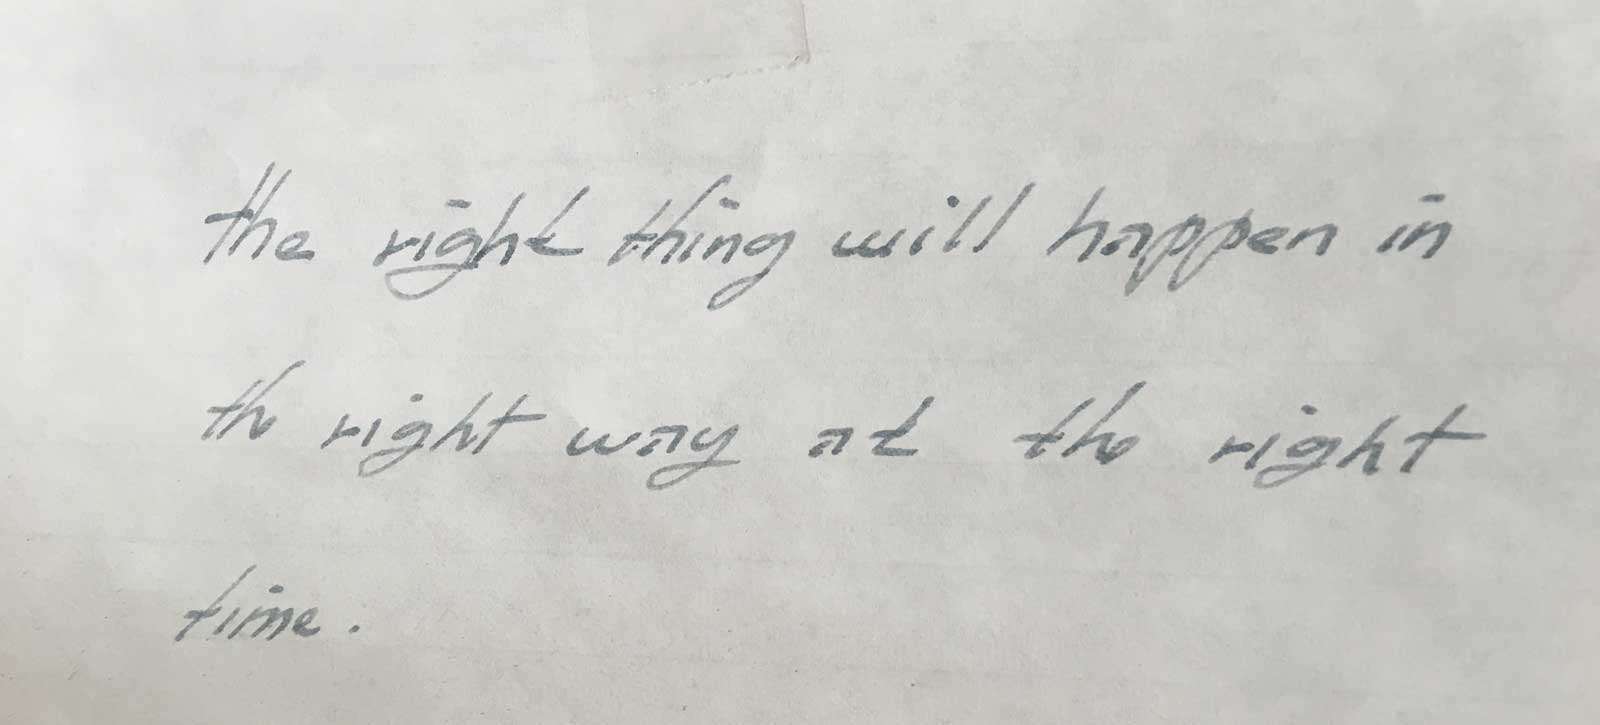 the right thing will happen in
the right way at the right
time.